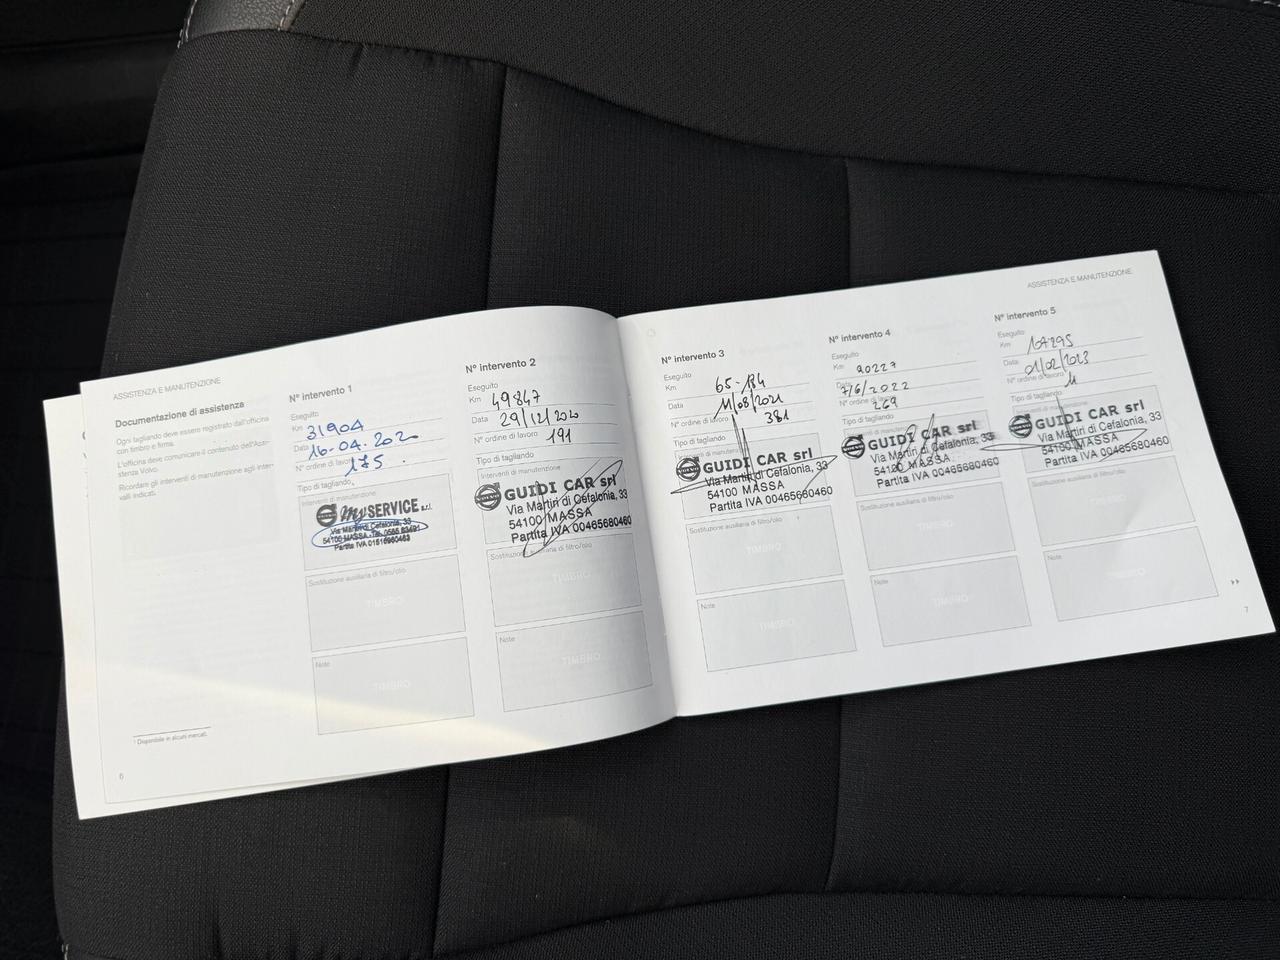 ASSISTENZA E MANUTENZIONE
Documentazione di assistenza
Ogni tagliando deve essere registrato dall'officina
con timbro e firma.
L'officina deve comunicare il contenuto dell'Assi-
stenza Volvo.
Ricordare gli interventi di manutenzione agli inter-
valli indicati.
1 Disponibile in alcuni mercati.
6
N° intervento 1
Eseguito
Km 31904
Data 16-04.2020
N° ordine di lavoro 175
Tipo di tagliando
Interventi di manutenzione
mySERVICE s.r.l.
Via Martiri di Cefalonia, 33
54100 MASSA
Sostituzione ausiliaria di filtro/olio
TIMBRO
Note
TIMBRO
N° intervento 2
Eseguito
Km 49847
Data 29/12/2020
N° ordine di lavoro 191
Tipo di tagliando
Interventi di manutenzione
VOLVO
GUIDI CAR srl
Via Martiri di Cefalonia, 33
54100 MASSA
Partita IVA 00465680460
Sostituzione ausiliaria di filtro/olio
TIMBRO
Note
TIMBRO
ASSISTENZA E MANUTENZIONE
N° intervento 3
Eseguito
Km 65-184
Data 11/08/2021
N° ordine di lavoro 381
Tipo di tagliando
GUIDI CAR srl
Via Martiri di Cefalonia, 33
54100 MASSA
Partita IVA 00465680460
Sostituzione ausiliaria di filtro/olio
TIMBRO
Note
TIMBRO
N° intervento 4
Eseguito
Km 90227
Data 7/6/2022
N° ordine di lavoro 269
Tipo di tagliando
GUIDI CAR srl
Via Martiri di Cefalonia, 33
54100 MASSA
Partita IVA 00465680460
Sostituzione ausiliaria di filtro/olio
TIMBRO
Note
TIMBRO
N° intervento 5
Eseguito
Km
Data 01/02/2023
N° ordine di lavoro 11
Tipo di tagliando
GUIDI CAR srl
Via Martiri di Cefalonia, 33
54100 MASSA
Partita IVA 00465680460
Sostituzione ausiliaria di filtro/olio
TIMBRO
Note
TIMBRO
7